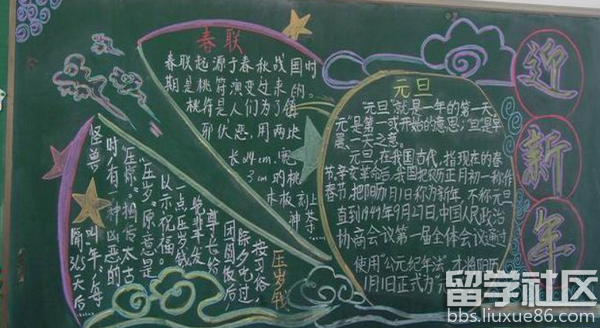 春联
春联起源于春秋战国时
期是桃符演变过来的。
桃符是人们为了镇
邪伏恶,用两块
长24cm,宽
3cm的桃
木板刻上
神荼
元旦
元旦"就是一年的第一天
元"是第一或开始的意思;旦是早
晨、一天之意。
元旦,在我国古代,指现在的春
节,辛亥革命后,我国把农历正月初一称作
春节,把阳历1月1日称为新年,不称元旦
直到1949年9月27日,中国人民政治
协商会议第一届全体会议通过
使用"公元纪年法",才将阳历
1月1日正式
迎新年
压岁钱
按习俗,
除夕吃过
团圆饭后
尊长给
晚辈分发
一点压岁钱
以示祝福。
"压岁"原意是
"压祟"。相传太古
时有一种凶恶的
怪兽
叫"年",每
隔365天后
留学社区
bbs.liuxue86.com